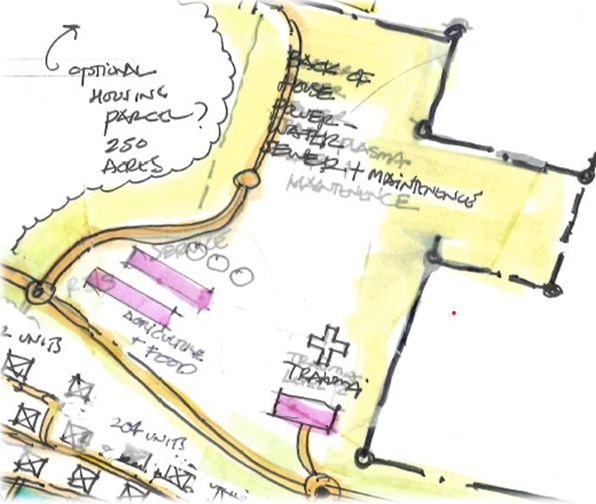 OPTIONAL
HOUSING
PARCEL?
250
ACRES
BACK OF
HOUSE
POWER -
WATER PLASMA
SEWER + MAINTENENCE
MAINTENENCE
SERVICE
AGRICULTURE
+ FOOD
TRAUMA
2 UNITS
204 UNITS